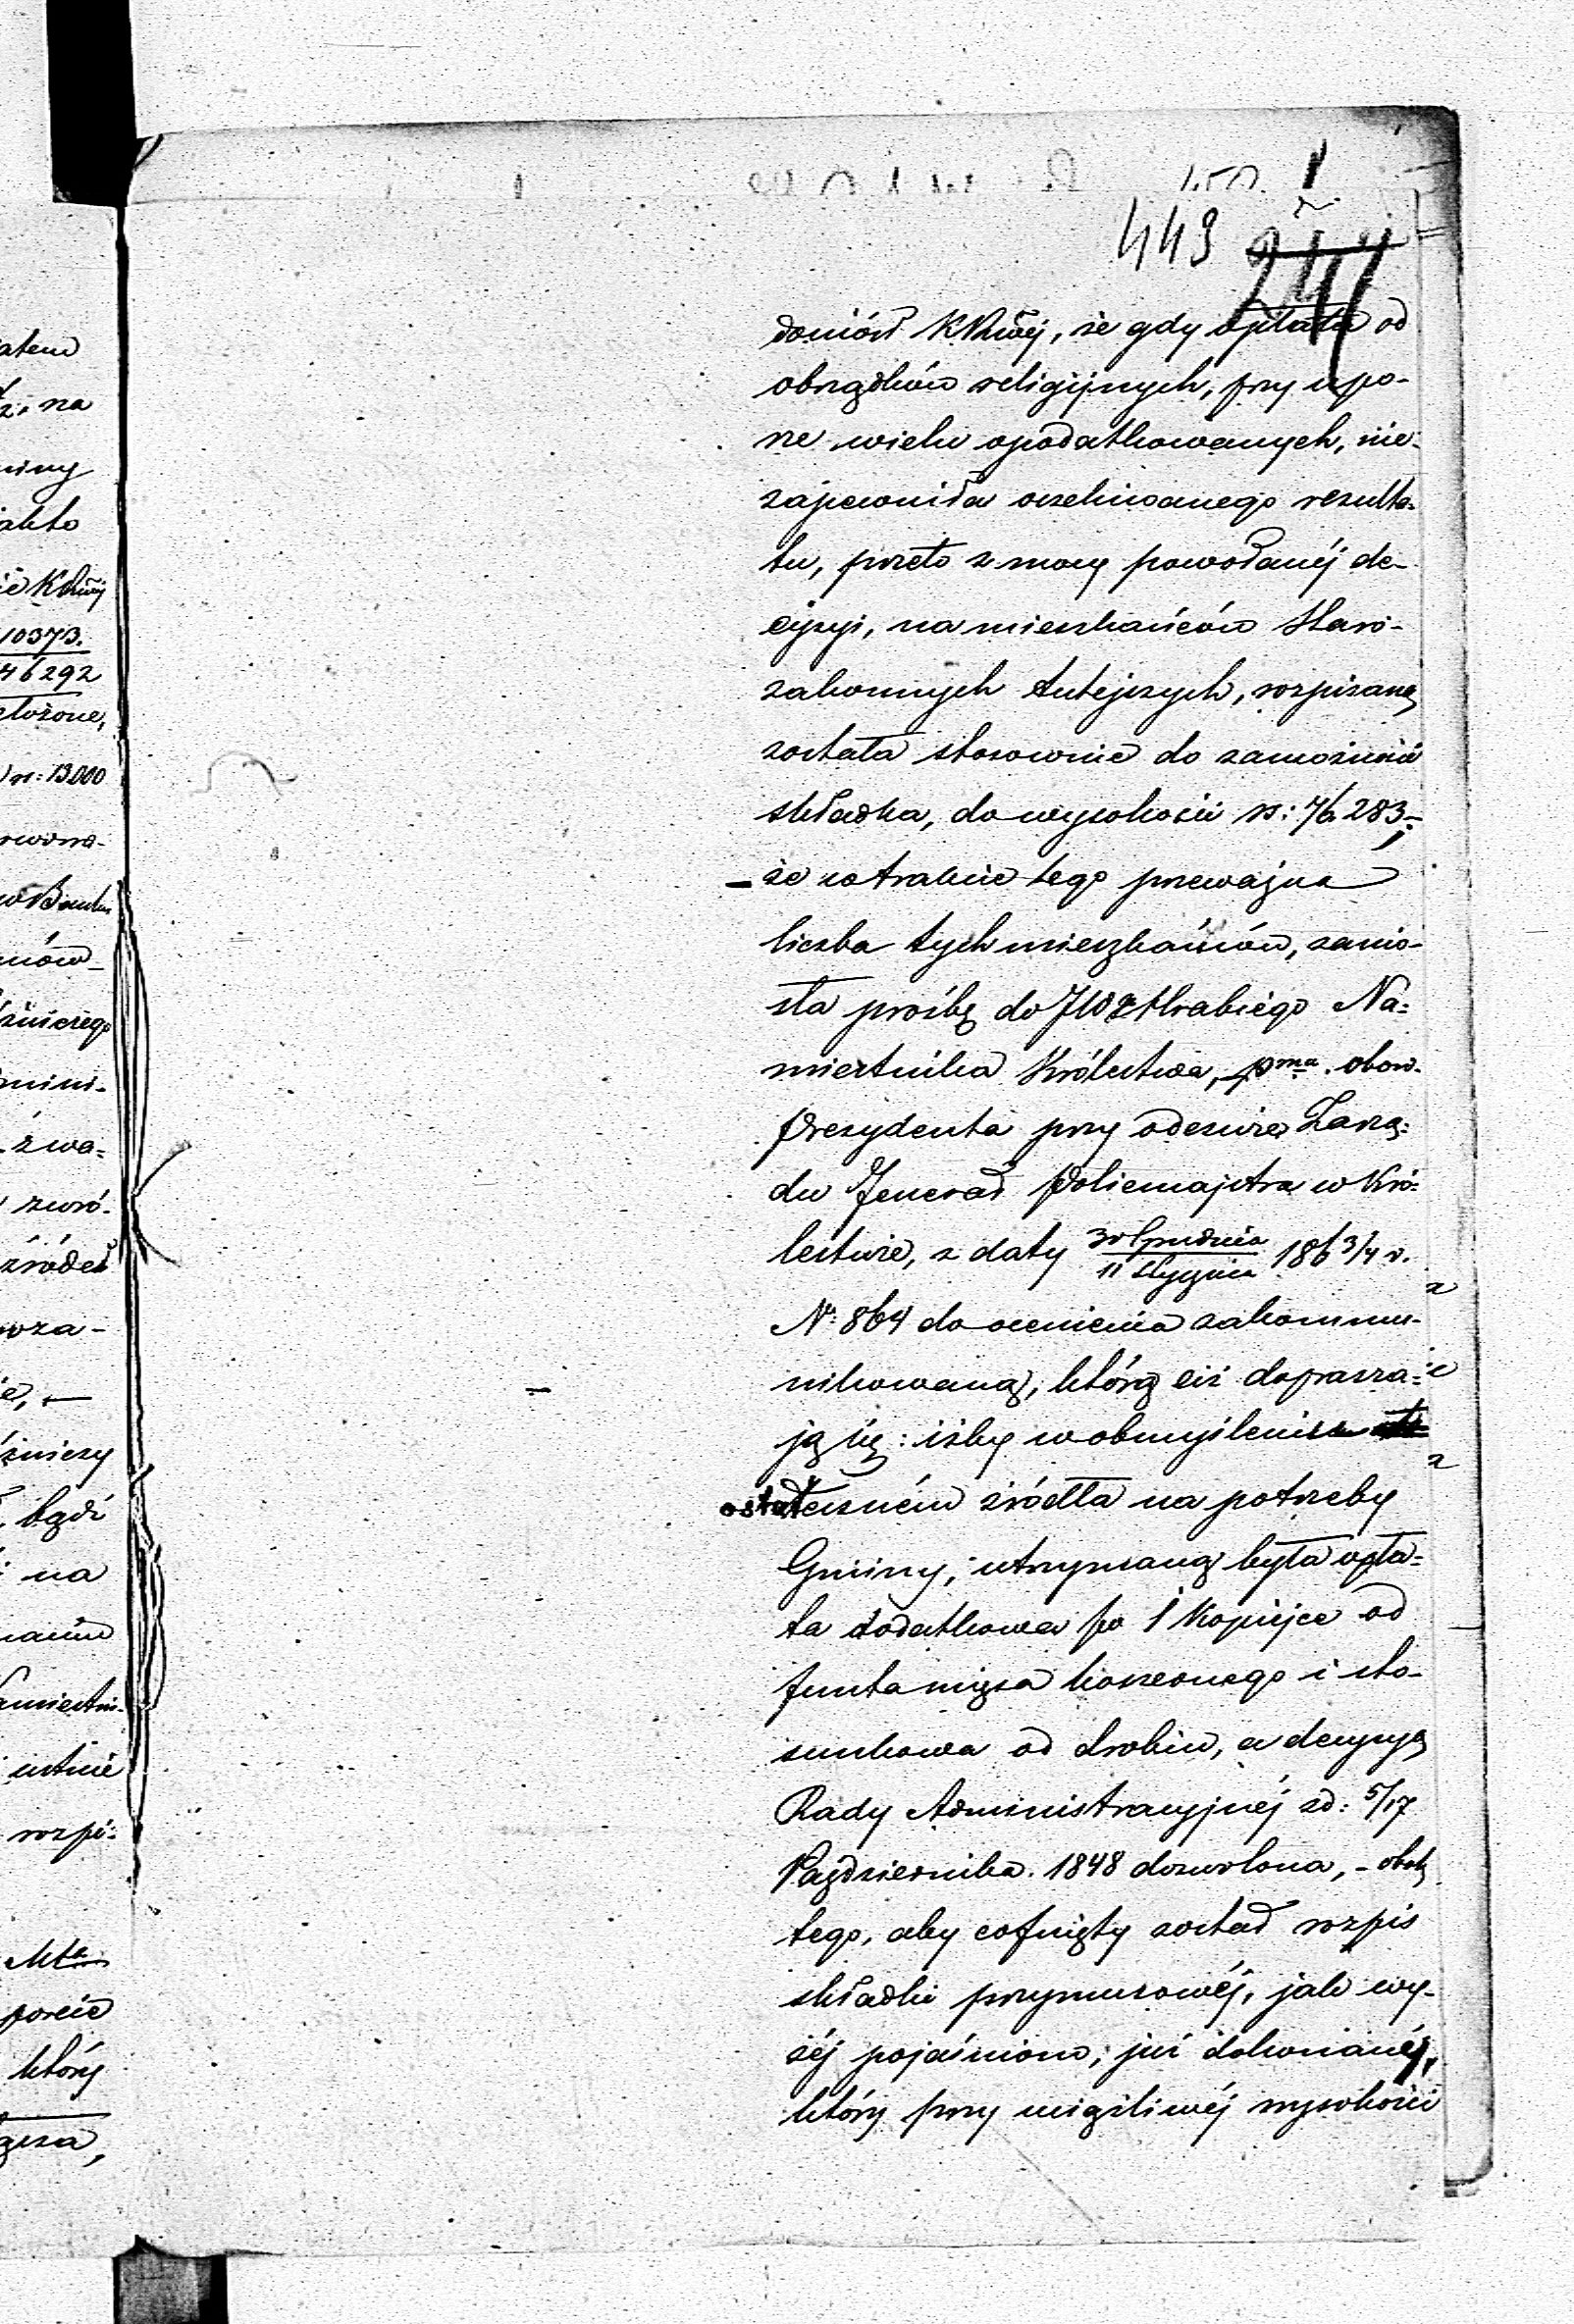 atem
na
miny
jakto
10373.
46292
złożone,
rs: 13000
w Banku
mów-
mini-
zwa-
zwró-
źródeł
bądź
na
ustnie
rozpi-
który
443
doniósł KRwej, że gdy opłata od
obrządków religijnych, przy upo-
rze wielu opodatkowanych, nie-
zapewniła oczekiwanego rezulta-
tu, przeto z mocy powołanéj de-
cyzyi, na mieszkańców Staro-
zakonnych tutejszych, rozpisaną
została stosownie do zamożności
składka, do wysokości rs: 76283;
– że w trakcie tego przeważna
liczba tych mieszkańców, zanio-
sła prośbę do JW Hrabiego Na-
miestnika Królestwa, obow.
Prezydenta przy odezwie Zarzą-
du Jenerał Policmajstra w Kró-
lestwie, z daty 30 Grudnia / 11 Stycznia 186 3/4 r.
N: 864 do ocenienia zakommu-
nikowaną, którą ciż doprasza-
ją się: iżby w obmyśleniu
ostateczném źródła na potrzeby
Gminy, utrzymaną była opła-
ta dodatkowa po 1 Kopiejce od
funta mięsa koszernego i sto-
sunkowa od drobiu, a decyzyą
Rady Administracyjnéj zd: 5/17
Października 1848 dozwolona, – obok
tego, aby cofnięty został rozpis
składki przymusowéj, jak wy-
żéj pojaśniono, już dokonanéj,
który przy wysokości